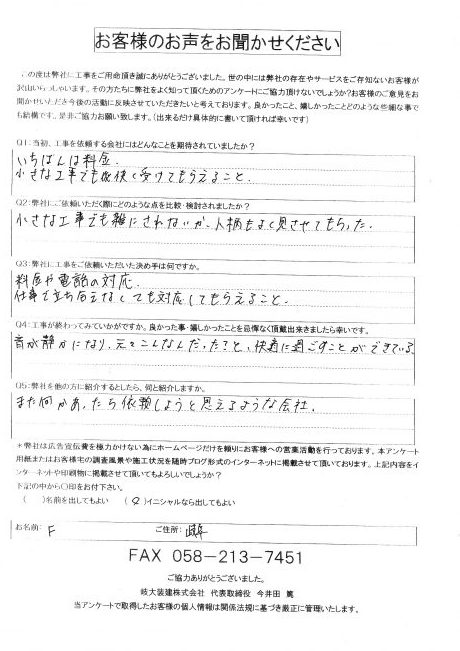 お客様のお声をお聞かせください
この度は弊社に工事をご用命頂き誠にありがとうございました。世の中には弊社の存在やサービスをご存知ないお客様が
沢山いらっしゃいます。その方たちに弊社をよく知って頂くためのアンケートにご協力頂けないでしょうか?お客様のご意見をお
聞かせいただき今後の活動に反映させていただきたいと考えております。良かったこと、嬉しかったことどのような些細な事で
も結構です。是非ご協力お願い致します。(出来るだけ具体的に書いて頂ければ幸いです)
Q1:当初、工事を依頼する会社にはどんなことを期待されていましたか?
いちばんは料金.
小さな工事でも快く受けてもらえること.
Q2:弊社にご依頼いただく際にどのような点を比較・検討されましたか?
小さな工事でも雑にされないか. 人柄もよく見させてもらった.
Q3:弊社に工事をご依頼いただいた決め手は何ですか。
料金や電話の対応.
仕事で立ち会えなくても対応してもらえること.
Q4:工事が終わってみていかがですか。良かった事・嬉しかったことを忌憚なく頂戴出来きましたら幸いです。
音が静かになり、元々こんなんだったっけと、快適に過ごすことができている
Q5:弊社を他の方に紹介するとしたら、何と紹介しますか。
また何かあったら依頼しようと思えるような会社.
*弊社は広告宣伝費を極力かけない為にホームページだけを頼りにお客様への営業活動を行っております。本アンケート
用紙またはお客様宅の調査風景や施工状況を随時ブログ形式のインターネットに掲載させて頂いております。上記内容をイ
ンターネットや印刷物に掲載させて頂いてもよろしいでしょうか?
下記の中から○印をお付下さい。
( )名前を出してもよい (○)イニシャルなら出してもよい
お名前: F ご住所: 岐阜
FAX 058-213-7451
ご協力ありがとうございました。
岐大装建株式会社 代表取締役 今井田 篤
当アンケートで取得したお客様の個人情報は関係法規に基づき厳正に管理いたします。